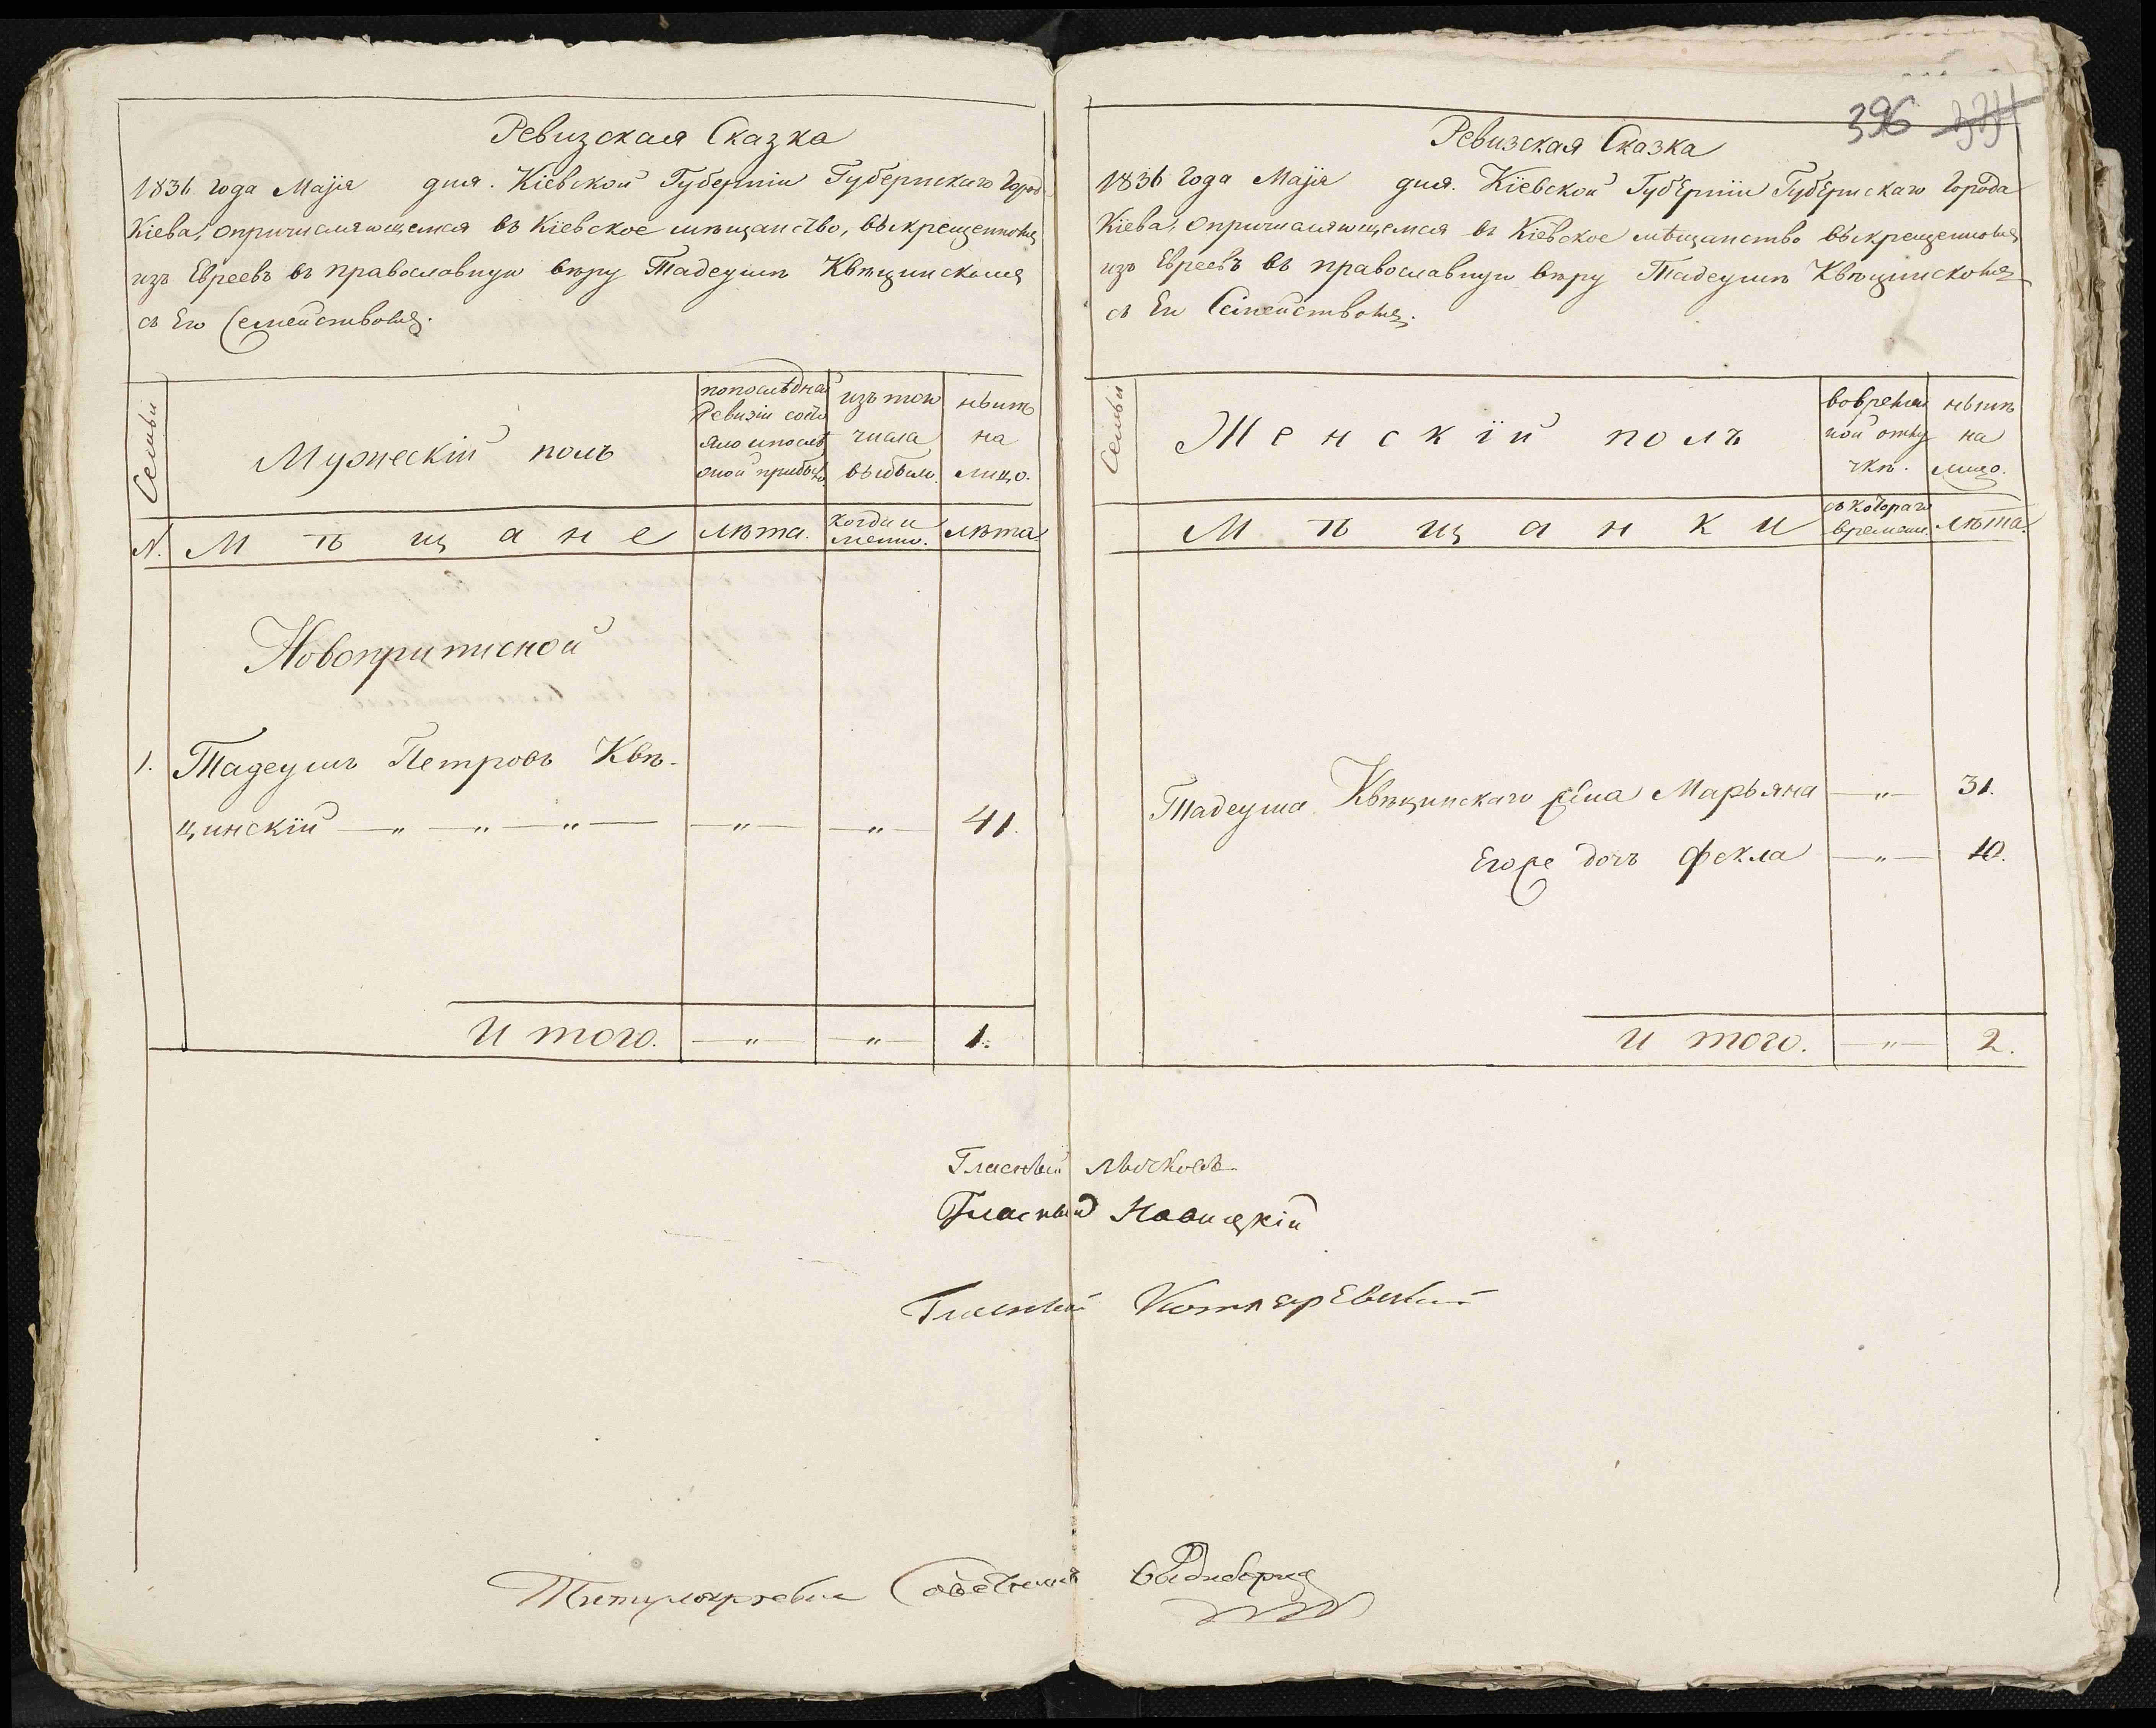 Ревизская Сказка
1836 года Маiя дня. Кіевской Губерніи Губернскаго Город
Кіева, опричисляющемся въ Кіевское мѣщанство, выкрещенномъ
изъ Евреевъ въ православную вѣру Тадеушѣ Квѣцинскомъ
съ Его Семействомъ.
Семьи
Мужескій полъ
попослѣдней Ревизіи состо яло ипослѣ оной прибыло.
изъ того числа выбыло.
нынѣ на лицо.
N. Мѣщане лѣта. когда и лѣта
Новоприписной
1. Тадеушъ Петровъ Квѣ-
цинскій — „ — „ — „ — — „ — — „ — 41.
И того. — „ — — „ — 1.
396
Ревизская Сказка
1836 года Маiя дня. Кіевской Губерніи Губернскаго города
Кіева, опричисляющемся въ Кіевское мѣщанство выкрещенномъ
изъ Евреевъ въ православную вѣру Тадеушѣ Квѣцинскомъ
съ Его Семействомъ.
Семьи
Женскій полъ
вовремен ной отлу чкѣ.
нынѣ на лицо.
Мѣщанки съ котораго времени. лѣта.
Тадеуша Квѣцинскаго жена Марьяна — „ — 31.
Егоже дочь Фекла — „ — 10.
И того. — „ — 2.
Гласный
Гласный Новицкій
Гласный Котляревскій
Титулярный Советникъ